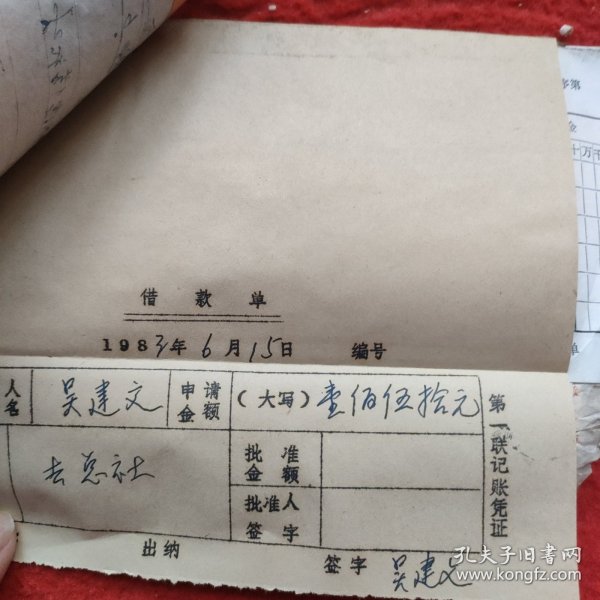 借款单
1983年6月15日 编号
人名 吴建文 申请金额 (大写) 壹佰伍拾元
去总社 批准金额
批准人签字
第一联记账凭证
出纳 签字 吴建文
序第
金
十万千
单
孔夫子旧书网
www.kongfz.com